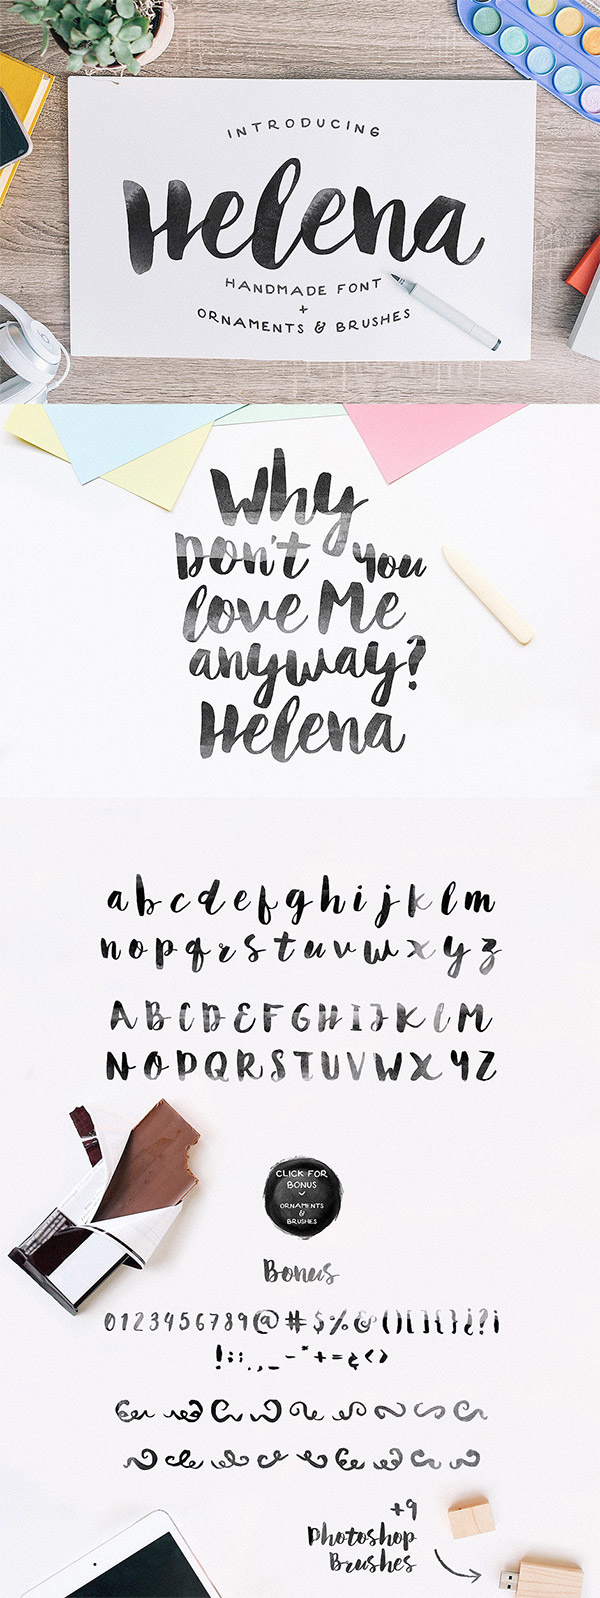 INTRODUCING
Helena
HANDMADE FONT
+
ORNAMENTS & BRUSHES
Why
Don't you
love Me
anyway?
Helena
a b c d e f g h i j k l m
n o p q r s t u v w x y z
A B C D E F G H I J K L M
N O P Q R S T U V W X Y Z
CLICK FOR
BONUS
ORNAMENTS
&
BRUSHES
Bonus
0 1 2 3 4 5 6 7 8 9 @ # $ % & ( ) [ ] { } ¿ ? ¡
! ; : . , _ - " * + = < >
+9
Photoshop
Brushes